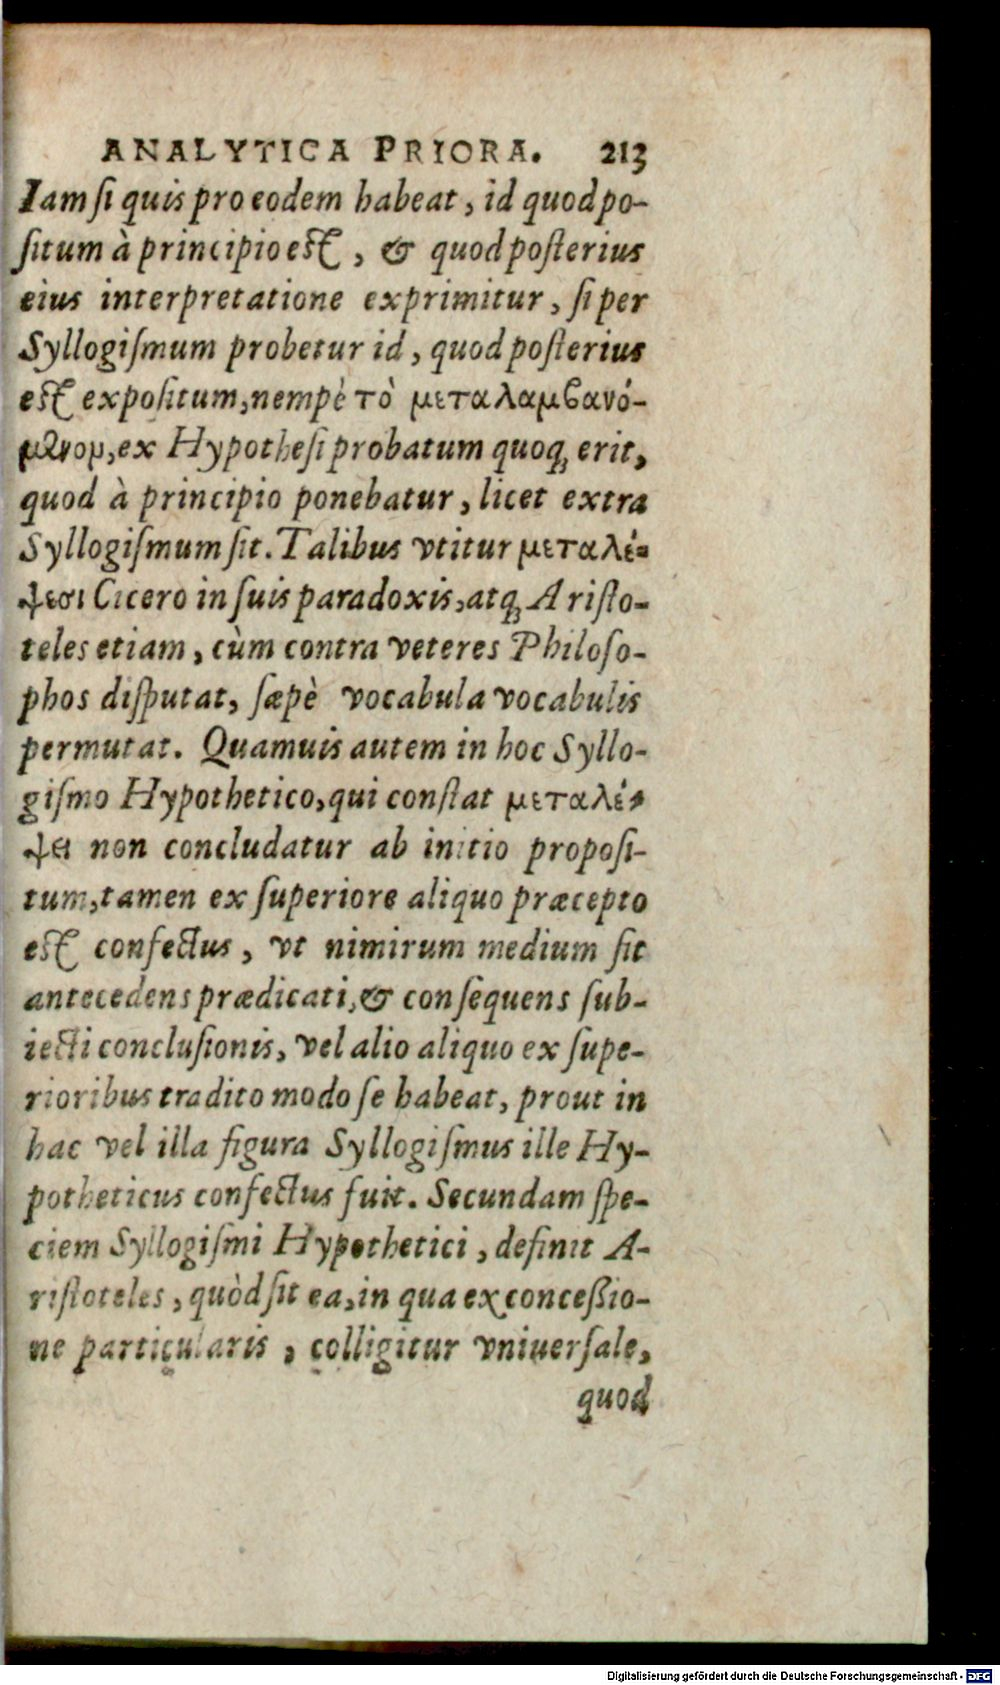 ANALYTICA PRIORA. 213
Iam ſi quis pro eodem habeat, id quod po-
ſitum à principio eſt, & quod poſterius
eius interpretatione exprimitur, ſi per
Syllogiſmum probetur id, quod poſterius
eſt expoſitum, nempè τὸ μεταλαμϐανό-
μενον, ex Hypotheſi probatum quoq; erit,
quod à principio ponebatur, licet extra
Syllogiſmum ſit. Talibus vtitur μεταλέ-
ψεσι Cicero in ſuis paradoxis, atq; Ariſto-
teles etiam, cùm contra veteres Philoſo-
phos diſputat, ſæpè vocabula vocabulis
permutat. Quamuis autem in hoc Syllo-
giſmo Hypothetico, qui conſtat μεταλέ-
ψει non concludatur ab initio propoſi-
tum, tamen ex ſuperiore aliquo præcepto
eſt confectus, vt nimirum medium ſit
antecedens prædicati, & conſequens ſub-
iecti concluſionis, vel alio aliquo ex ſupe-
rioribus tradito modo ſe habeat, prout in
hac vel illa figura Syllogiſmus ille Hy-
potheticus confectus fuit. Secundam ſpe-
ciem Syllogiſmi Hypothetici, definit A-
riſtoteles, quòd ſit ea, in qua ex conceßio-
ne particularis, colligitur vniuerſale,
quod
Digitalisierung gefördert durch die Deutsche Forschungsgemeinschaft - DFG